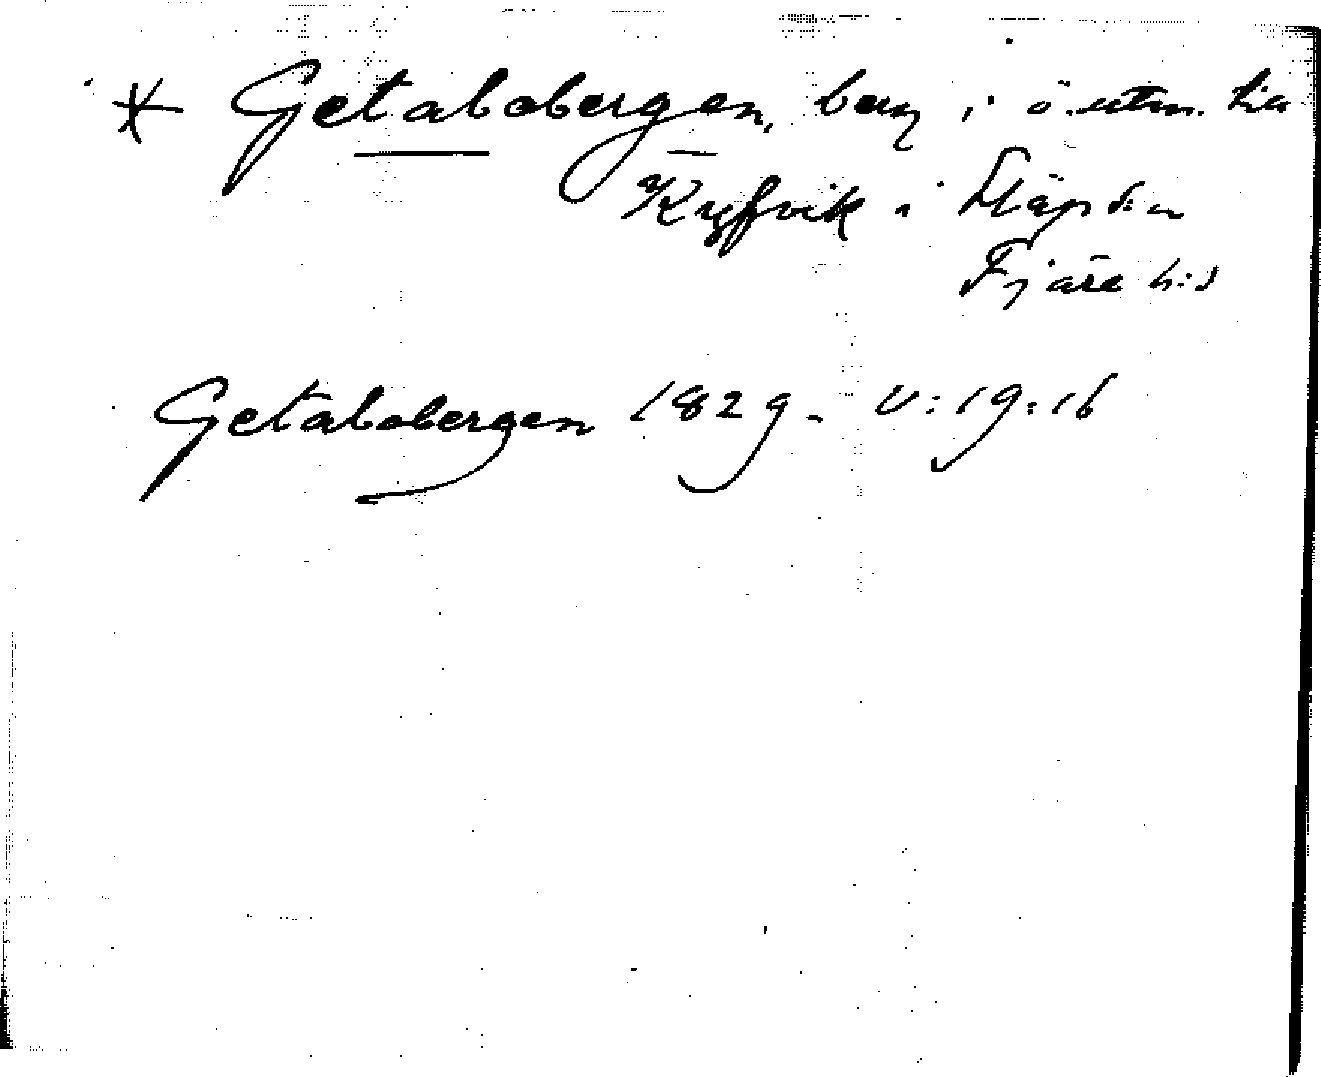 * Getabobergen, berg i ö. utm. till
Kyffvik i Släps sn
Fjäre hd
Getabobergen 1829. V:19:16